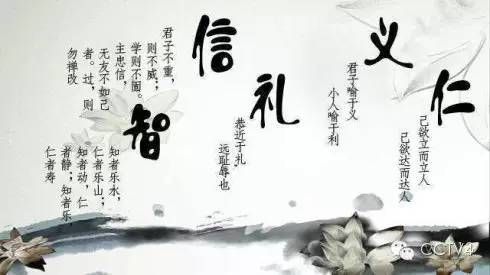 仁
己欲立而立人
己欲达而达人
义
君子喻于义
小人喻于利
礼
恭近于札
远耻辱也
信
君子不重，
则不威；
学则不固。
主忠信，
无友不如己
者。过，则
勿惮改
智
知者乐水，
仁者乐山；
知者动，仁
者静；知者乐，
仁者寿
CCTV4